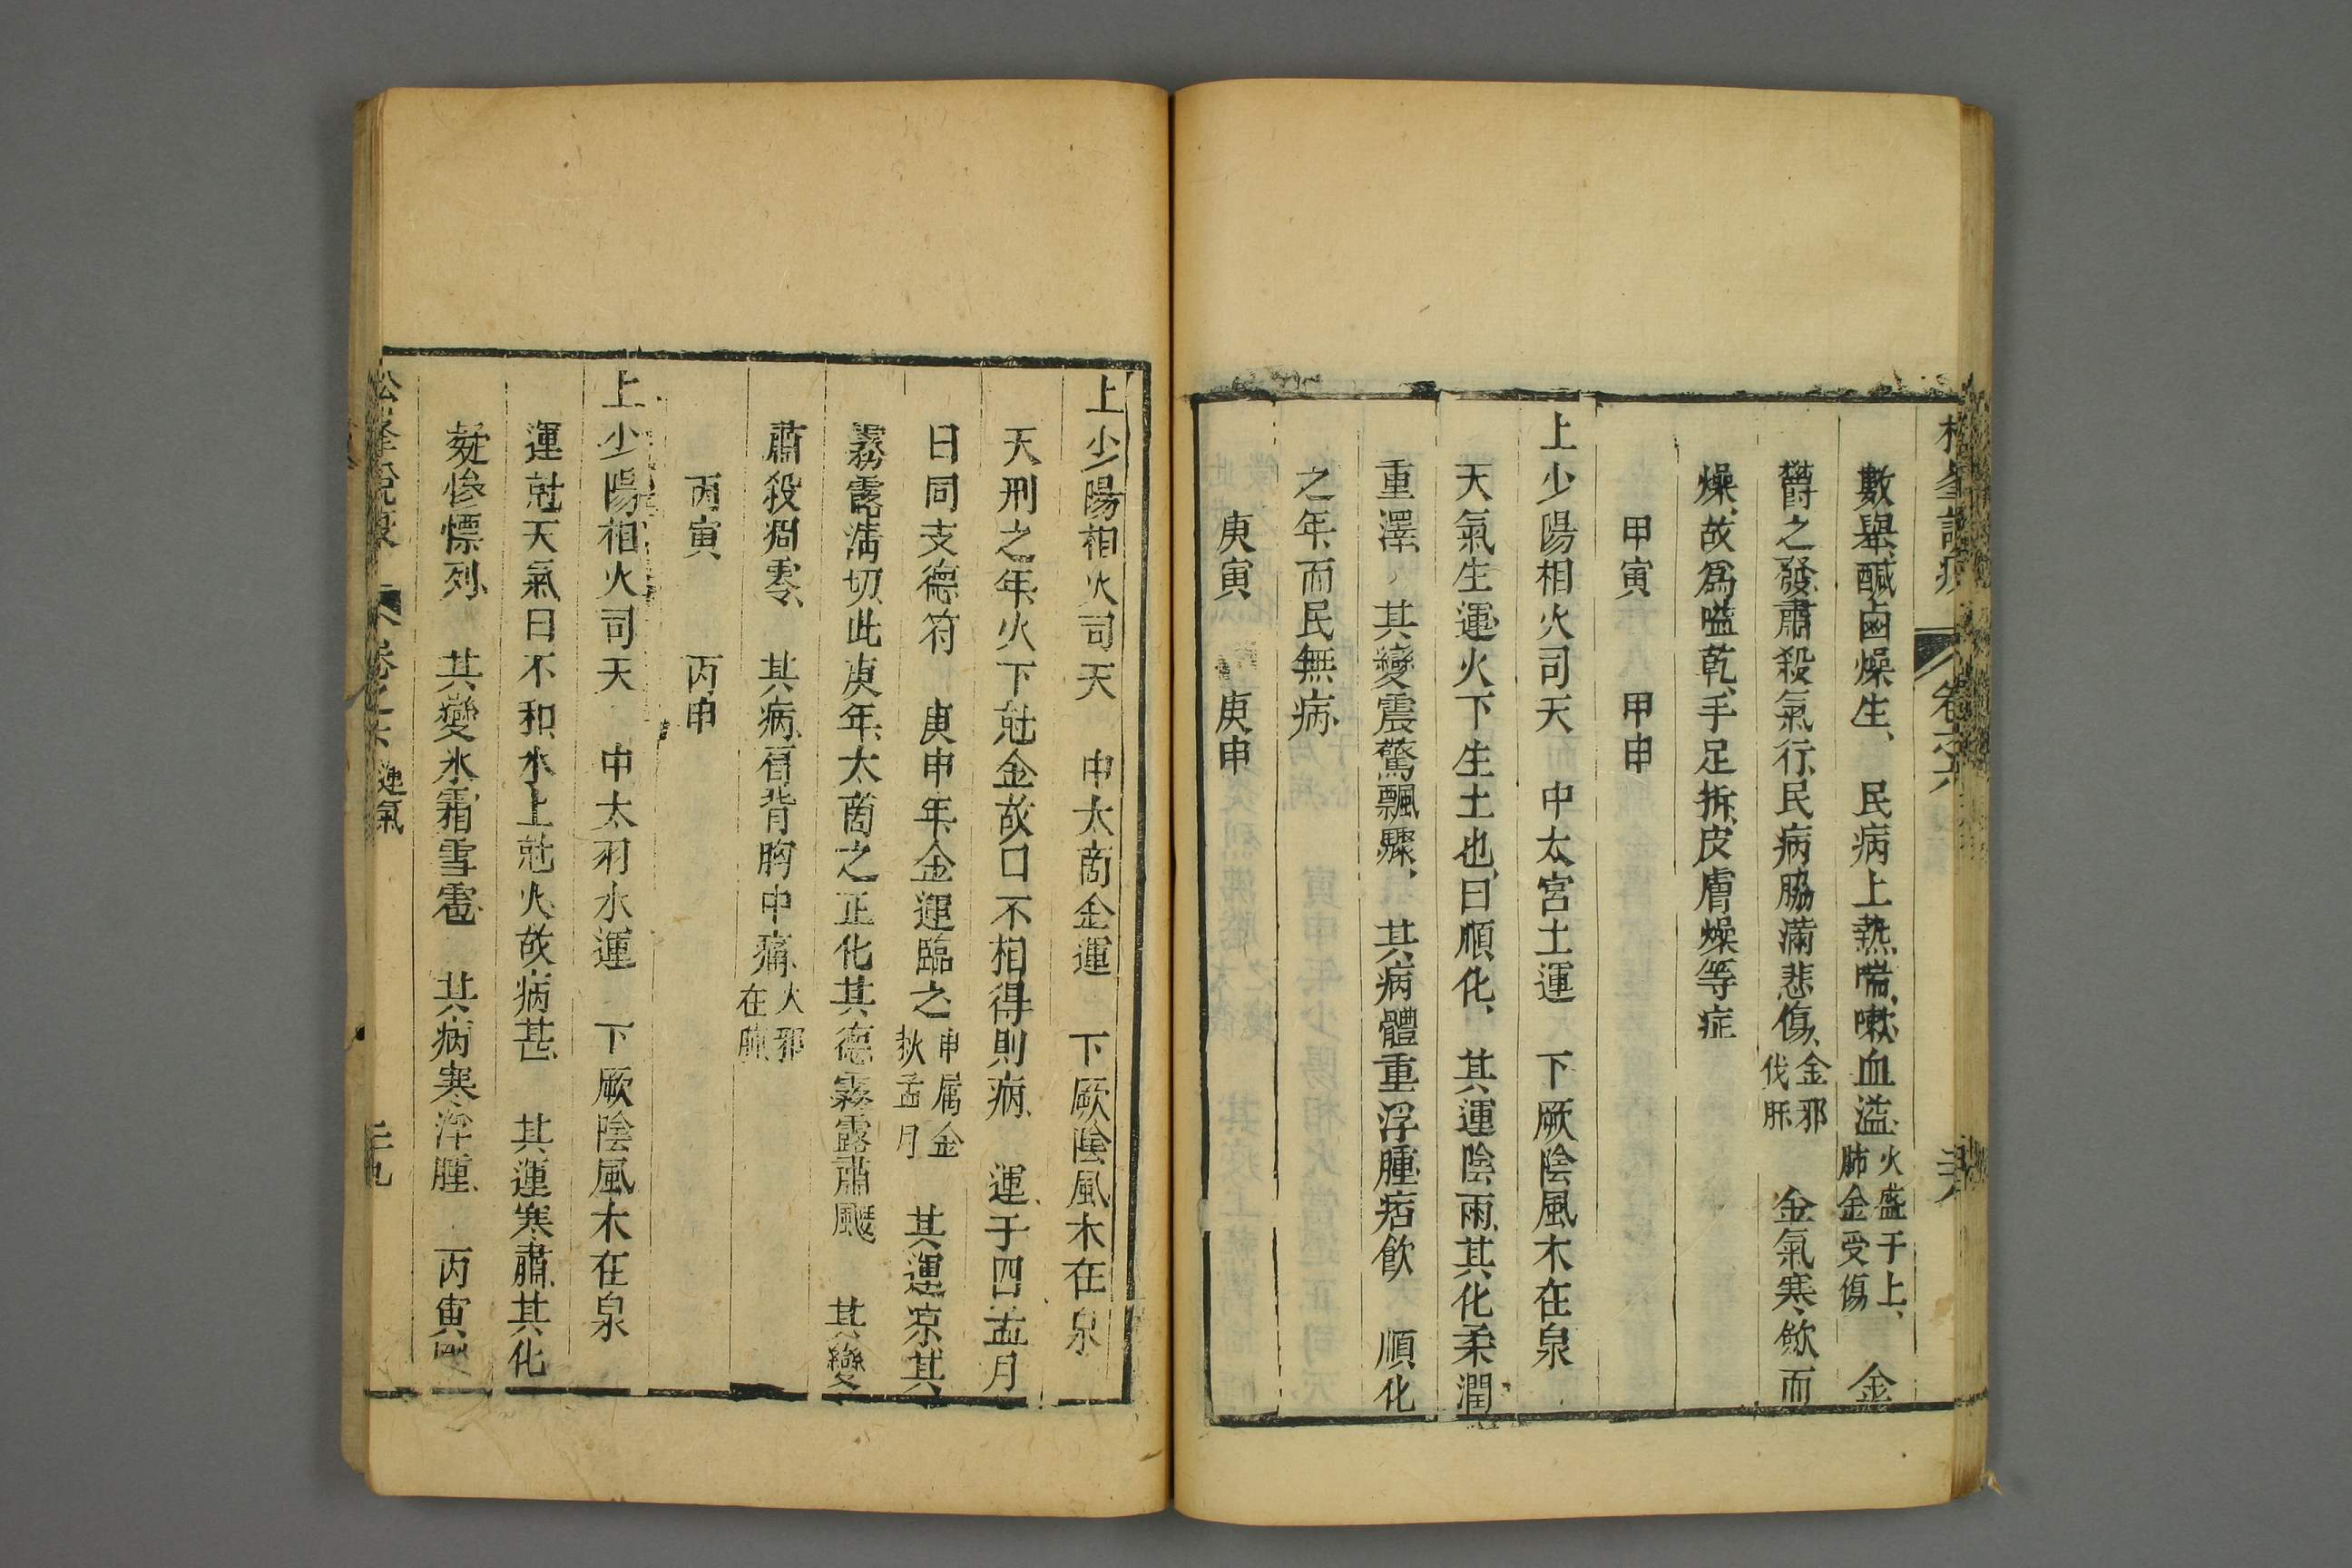 數舉、鹹鹵燥生、　民病上熱喘嗽血溢、火盛于上、肺金受傷　金
鬱之發、肅殺氣行、民病脇滿悲傷、金邪伐肝　金氣寒斂而
燥、故爲嗌乾、手足拆、皮膚燥等症
甲寅　　甲申
上少陽相火司天　中太宮土運　下厥陰風木在泉
天氣生運、火下生土也、曰順化、　其運陰雨、其化柔潤
重澤、　其變震驚飄驟、　其病體重浮腫痞飲　順化
之年、而民無病、
庚寅　　庚申
卷之六
上少陽相火司天　中太商金運　下厥陰風木在泉
天刑之年、火下尅金、故曰不相得則病、　運于四孟月
曰同支德符　庚申年、金運臨之、申屬金秋孟月　其運凉、其
霧露淸切、此庚年、太商之正化、其德霧露蕭飋　其變
肅殺凋零、　其病、肩背胸中痛、火邪在肺、
丙寅　　丙申
上少陽相火司天　中太羽水運　下厥陰風木在泉
運尅天氣、曰不和、水上尅火、故病甚、　其運寒肅、其化
凝慘慄冽、　其變氷霜雪雹、　其病寒浮腫、　丙寅
松峯說疫　卷之六　運氣　二十九